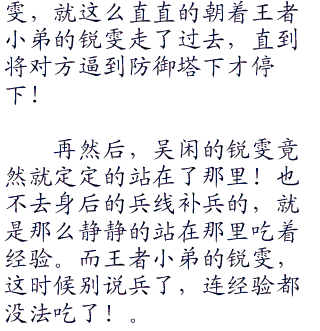 雯，就这么直直的朝着王者
小弟的锐雯走了过去，直到
将对方逼到防御塔下才停
下！
再然后，吴闲的锐雯竟
然就定定的站在了那里！也
不去身后的兵线补兵的，就
是那么静静的站在那里吃着
经验。而王者小弟的锐雯，
这时候别说兵了，连经验都
没法吃了！。